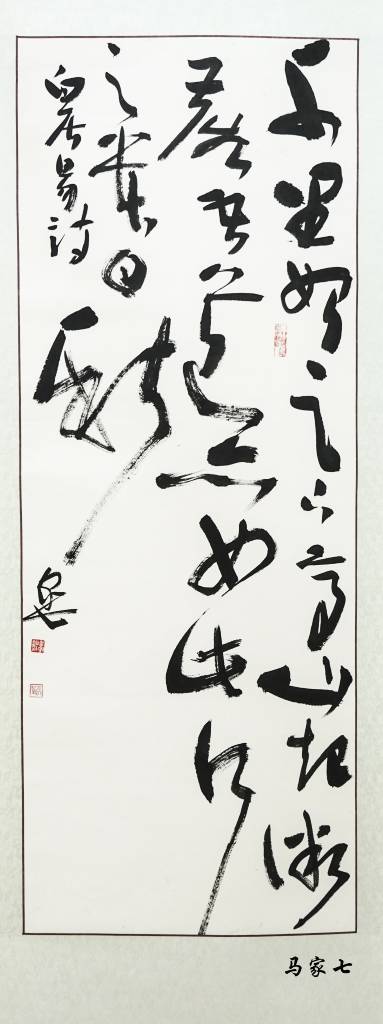 千里始足下高山起微
塵吾道亦如此行
之貴日新
白居易詩
马家七